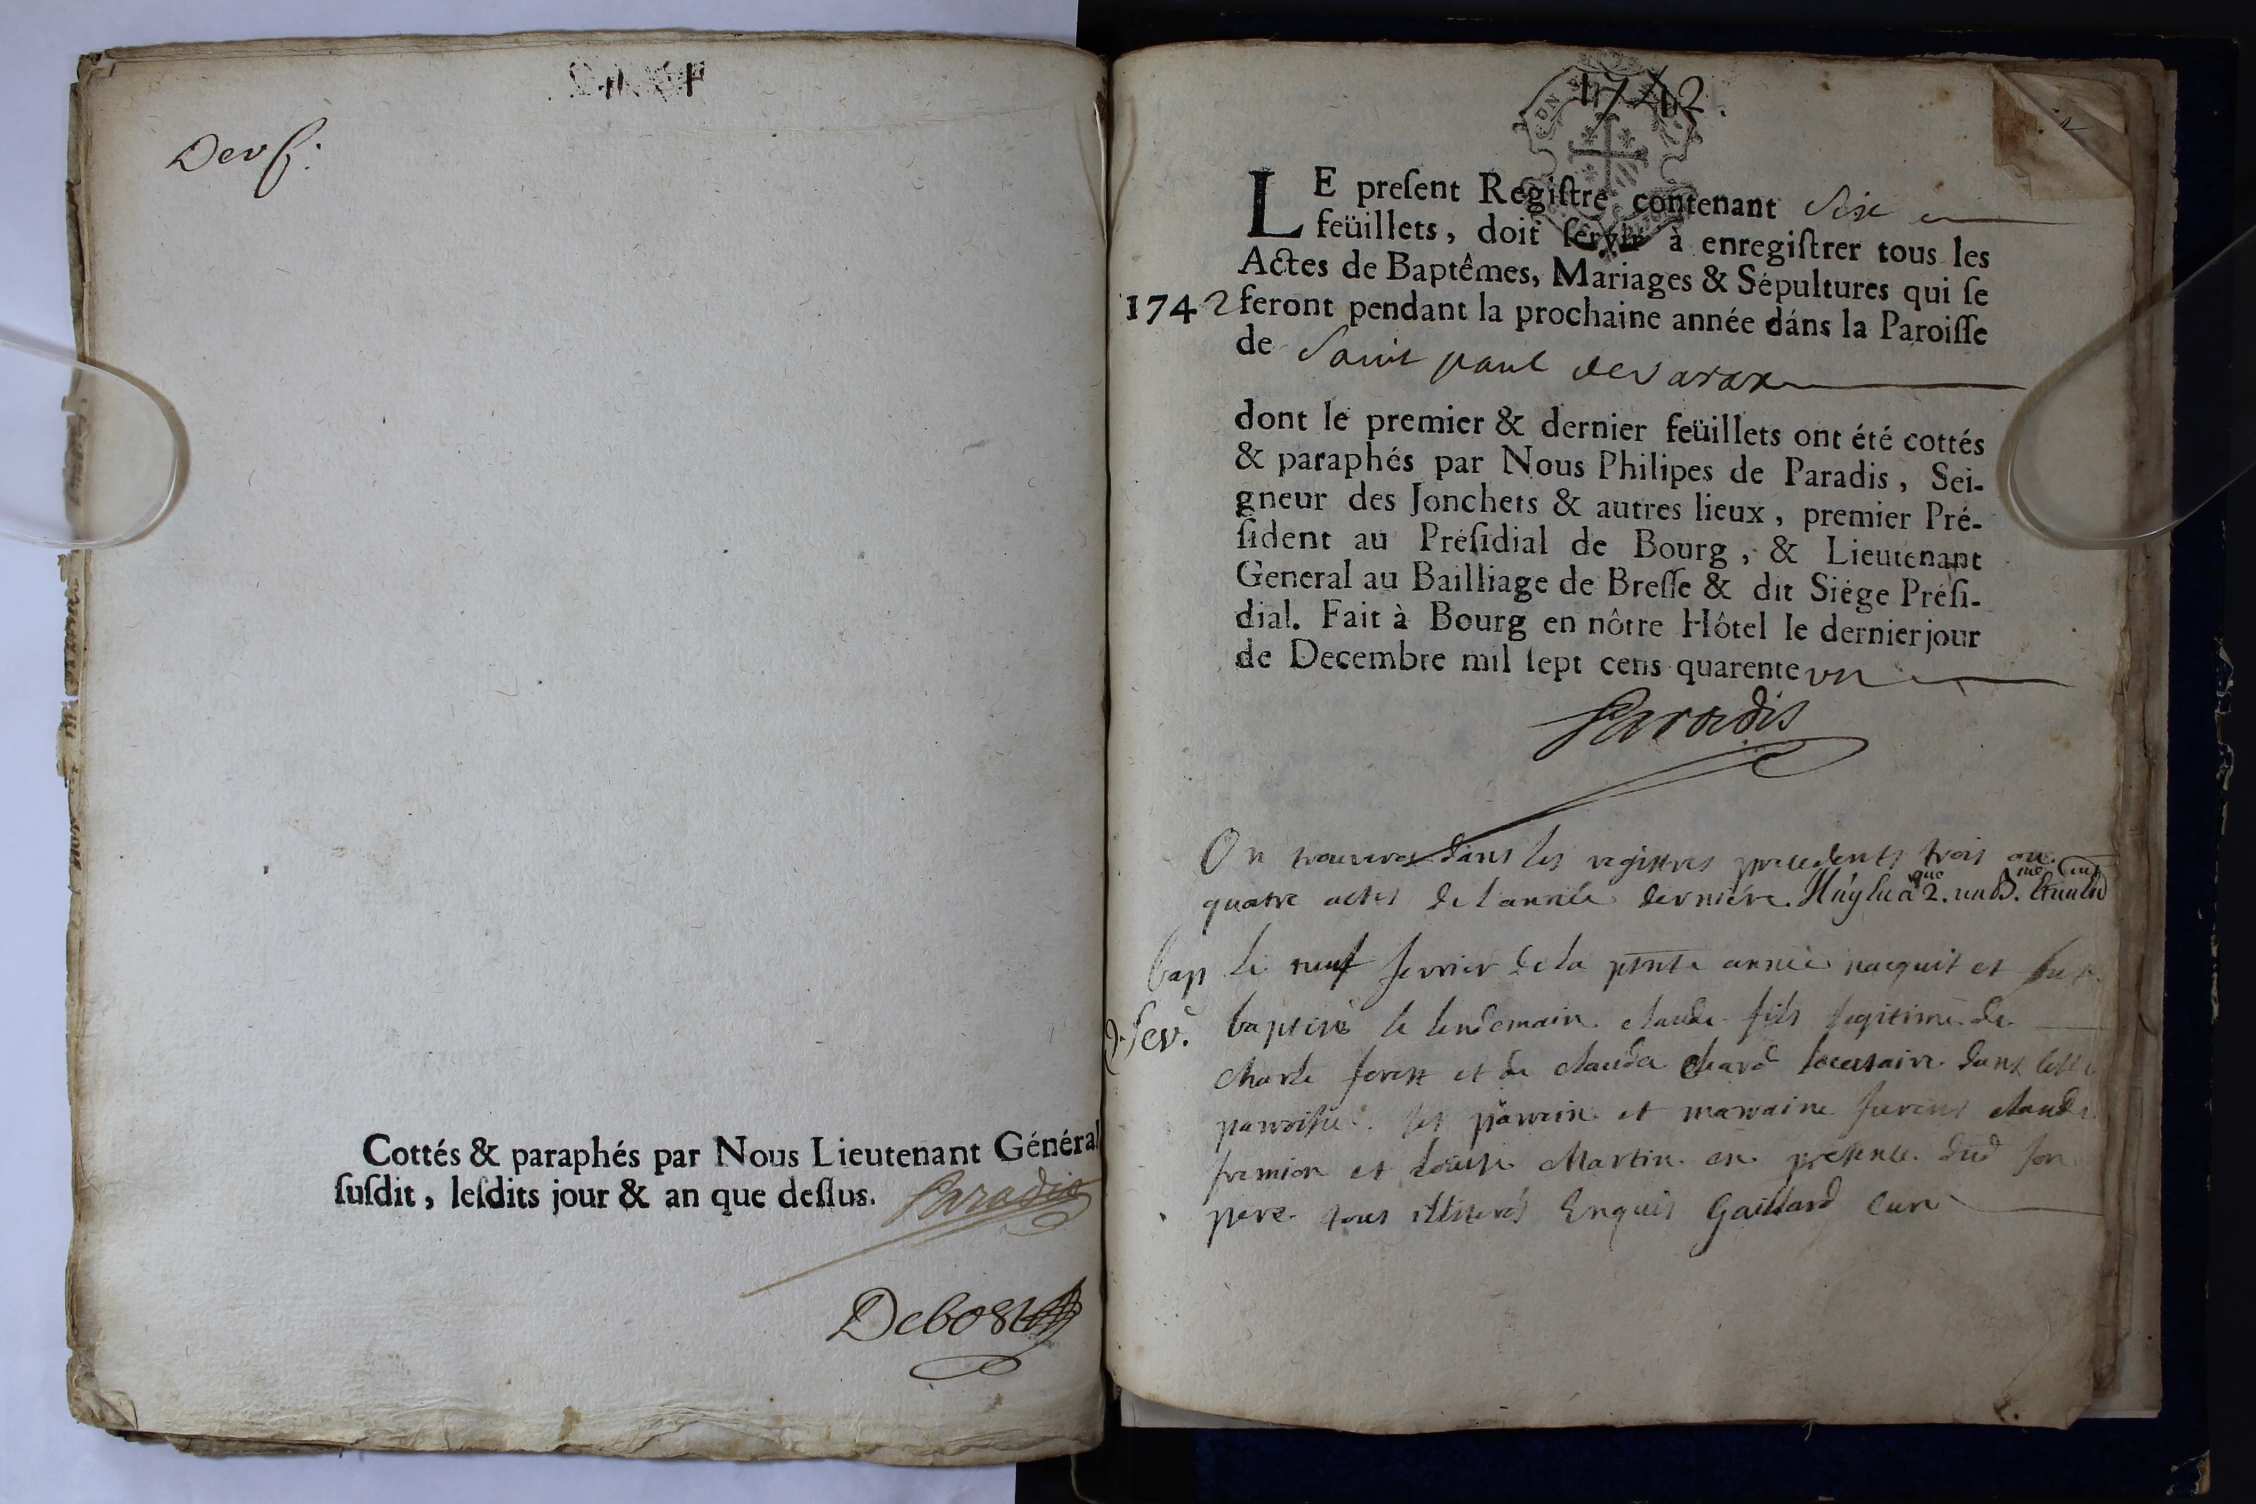 Der f.
Cottés & paraphés par Nous Lieutenant Général
suſdit, leſdits jour & an que deſſus. Paradis
Debost
1742.
LE preſent Regiſtre contenant Six
feüillets, doit ſervir à enregiſtrer tous les
Actes de Baptêmes, Mariages & Sépultures qui ſe
1742 feront pendant la prochaine année dáns la Paroiſſe
de Saint paul de Varax
dont le premier & dernier feüillets ont été cottés
& paraphés par Nous Philipes de Paradis, Sei-
gneur des Jonchets & autres lieux, premier Pré-
ſident au Préſidial de Bourg, & Lieutenant
General au Bailliage de Breſſe & dit Siége Préſi-
dial. Fait à Bourg en nôtre Hôtel le dernier jour
de Decembre mil ſept cens quarente un
Paradis
On trouvera dans les registres precedents trois ou
quatre actes de l'année derniére. Il n'y en a que 2. un B.
bap le neuf fevrier de la pnte année nacquit et fut
9. fev. baptisé le lendemain claude fils legitime de
charle forest et de clauda chard locataire dans cette
parroisse. ses parrein et marraine furent claude
fremion et Louise Martin en presence dud son
pere tous illiterés Enquis Gaillard Curé